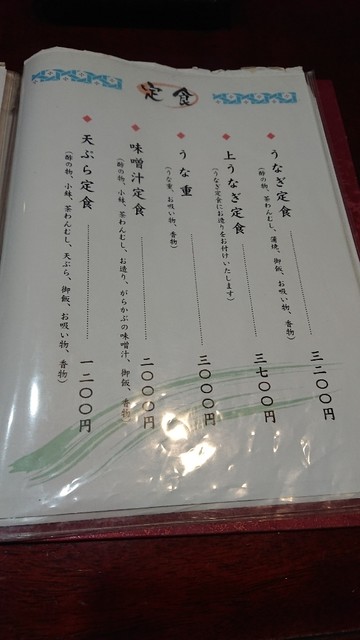 定食
うなぎ定食
(酢の物、茶わんむし、蒲焼、御飯、お吸い物、香物)
三二〇〇円
上うなぎ定食
(うなぎ定食にお造りをお付けいたします)
三七〇〇円
うな重
(うな重、お吸い物、香物)
三〇〇〇円
味噌汁定食
(酢の物、小鉢、茶わんむし、お造り、がらかぶの味噌汁、御飯、香物)
二〇〇〇円
天ぷら定食
(酢の物、小鉢、茶わんむし、天ぷら、御飯、お吸い物、香物)
一二〇〇円